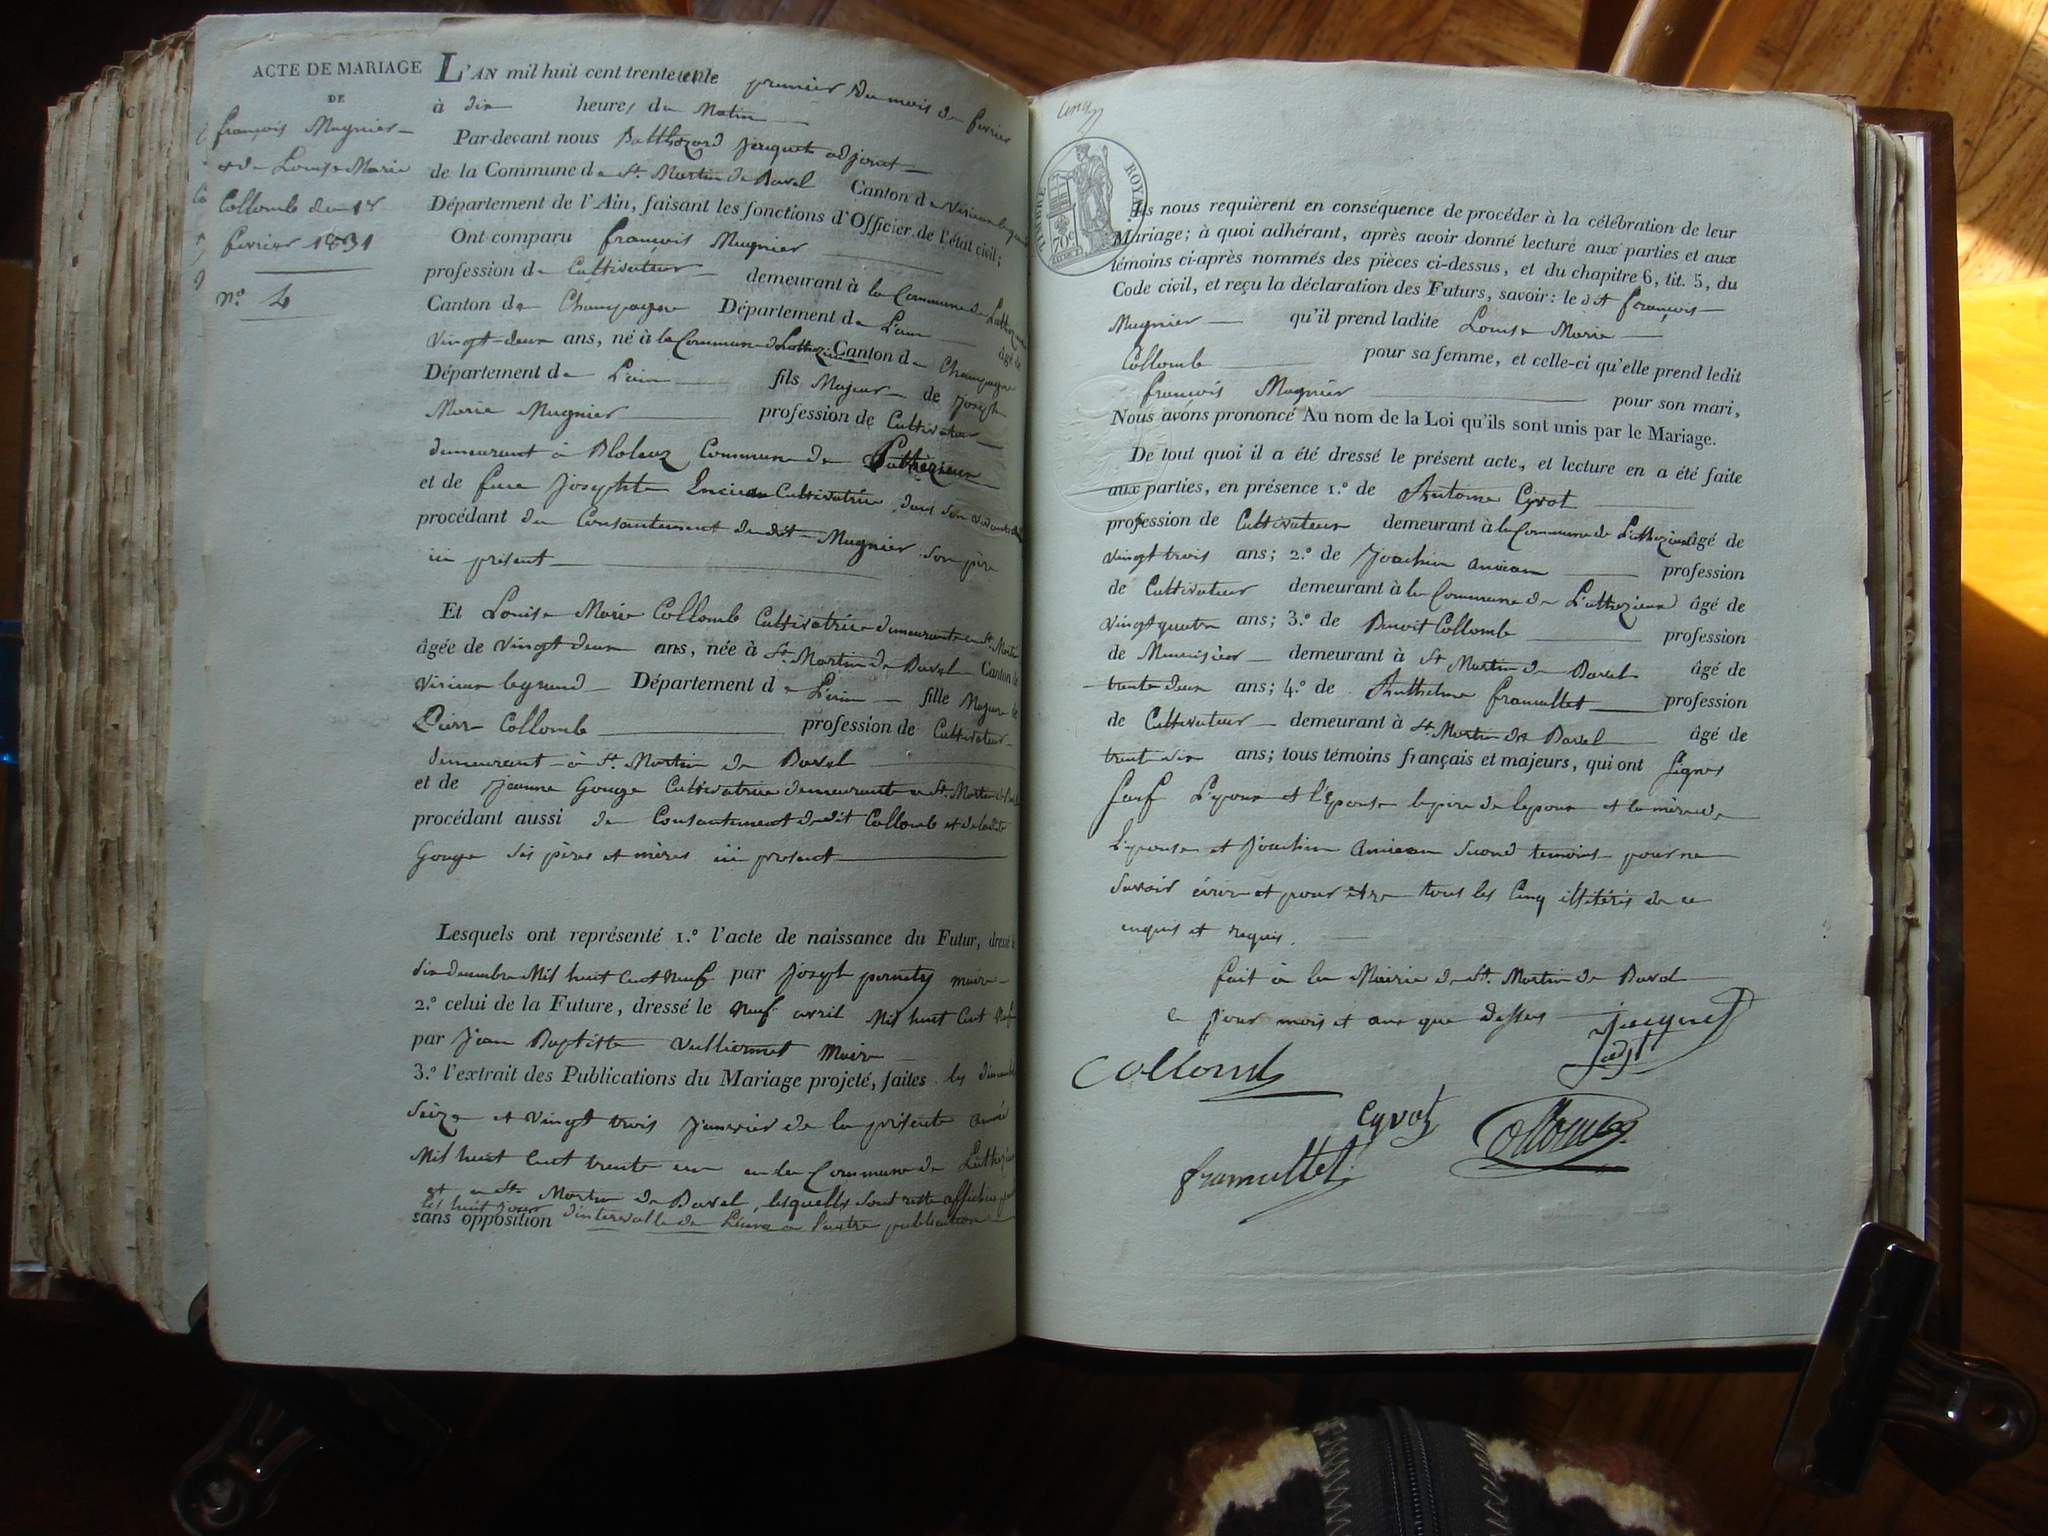 ACTE DE MARIAGE
DE
françois Mugnier
et de Louise Marie
Collomb du 1er
fevrier 1831
n.o 4
L'AN mil huit cent trente un le premier du mois de fevrier
à dix heures du Matin
Par-devant nous Balthazard Jacquet adjoint
de la Commune de St. Martin de Bavel Canton de Virieu le grand
Département de l'Ain, faisant les fonctions d'Officier de l'état civil;
Ont comparu françois Mugnier
profession de Cultivateur demeurant à la Commune de
Canton de Champagne Département de L'ain âgé de
Vingt-deux ans, né à la Commune de Canton de Champagne
Département de L'ain fils Majeur de Joseph
Marie Mugnier profession de Cultivateur
demeurant à Commune de Luthézieux
et de feue Josephte Cultivatrice dans son
procédant du Consantement du dit Mugnier son père
ici présent
Et Louise Marie Collomb Cultivatrice demeurante a St. Martin
âgée de Vingt deux ans, née à St. Martin de Bavel Canton de
Virieux legrand Département de L'ain fille Majeure de
Pierre Collomb profession de Cultivateur
demeurant à St. Martin de Bavel
et de Jeanne Gouge Cultivatrice demeurante a St. Martin de
procédant aussi du Consantement dudit Collomb et de ladite
Gouge ses pères et mères ici present
Lesquels ont représenté 1.o l'acte de naissance du Futur, dressé le
dix decembre Mil huit Cent Neuf par Joseph maire
2.o celui de la Future, dressé le Neuf avril Mil huit Cent Neuf
par Jean Baptiste Vulliermet Maire
3.o l'extrait des Publications du Mariage projeté, faites les dimanches
Seize et Vingt trois Janvier de la présente année
Mil huit Cent trente un en la Commune de
et en St. Martin de Bavel, lesquelles sont reste affichés
les huit jours
sans opposition d'intervalle de L'une a l'autre publication
TIMBRE ROYAL
70c
Ils nous requièrent en conséquence de procéder à la célébration de leur
Mariage; à quoi adhérant, après avoir donné lecture aux parties et aux
témoins ci-après nommés des pièces ci-dessus, et du chapitre 6, tit. 5, du
Code civil, et reçu la déclaration des Futurs, savoir: le dit françois
Mugnier qu'il prend ladite Louise Marie
Collomb pour sa femme, et celle-ci qu'elle prend ledit
françois Mugnier pour son mari,
Nous avons prononcé Au nom de la Loi qu'ils sont unis par le Mariage.
De tout quoi il a été dressé le présent acte, et lecture en a été faite
aux parties, en présence 1.o de Antoine Cyvot
profession de Cultivateur demeurant à la Commune de Luthezieu âgé de
vingt trois ans; 2.o de Joachim profession
de Cultivateur demeurant à la Commune de Luthezieux âgé de
vingt quatre ans; 3.o de Benoit Collomb profession
de Menuisier demeurant à St Martin de Bavel âgé de
trente deux ans; 4.o de Anthelme framullet profession
de Cultivateur demeurant à St. Martin de Bavel âgé de
trent six ans; tous témoins français et majeurs, qui ont Signes
Sauf L'epoux et l'Epouse le père de lepoux et la mère de
L'epouse et Joachim Second temoins pour ne
Savoir écrire et pour etre tous les Cinq illitérés de ce
enquis et requis.
fait à la Mairie de St. Martin de Bavel
le Jour mois et an que dessus Jacquet
adjt
Collomb
Cyvot
Collomb
framullet